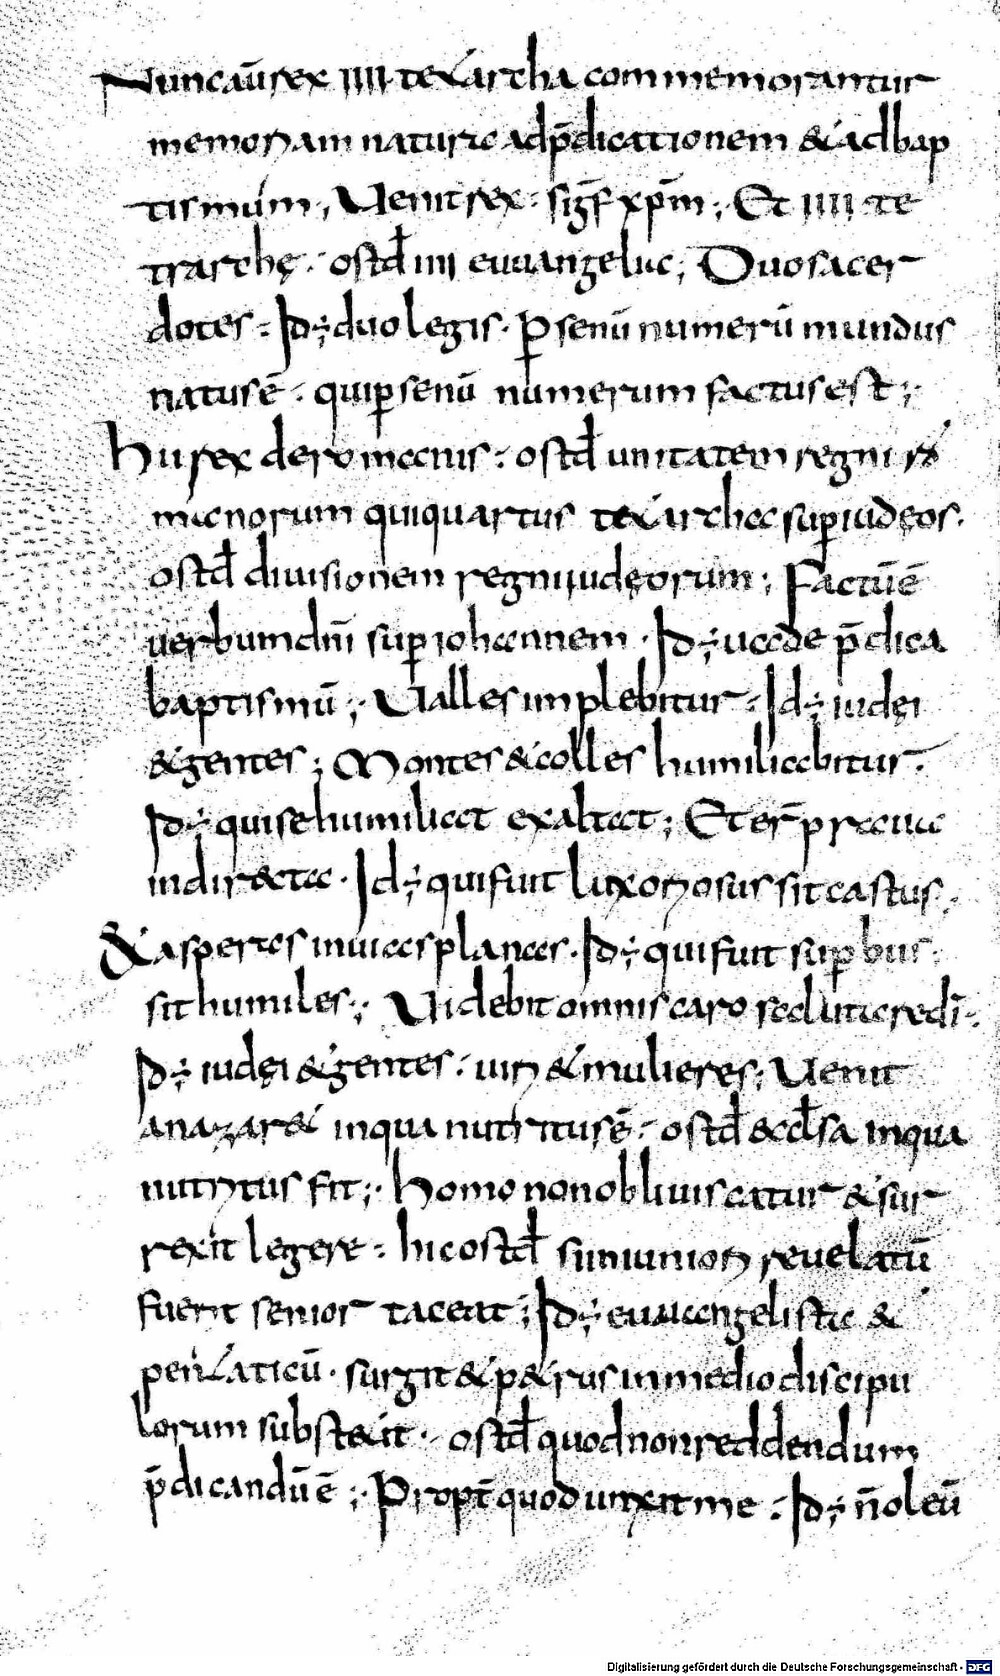 Nuncaūsex IIII tetrarcha commemorantur
memoriam naturae adp̄dicationem & adbap
tismum; Uenit rex · sigf̄ xp̄m; Et IIII te
trarchę · ostd̄ IIII euuangelia; Duo sacer
dotes · Id; duo legis · P senū numerū mundus
natus ē · quiꝑsenū numerum factus est;
Hii rex de romanis · ostd̄ unitatem regni ro
manorum qui quartus tetrarcha suꝑ iudęos.
ostd̄ diuisionem regni iudęorum; Factū ē
uerbum dn̄i suꝑ iohannem · Id; uade p̄dica
baptismū; Ualles implebitur · Id; iudęi
& gentes; Montes & colles humiliabitur.
Id; qui se humiliat exaltat; Et er̄ praua
in directa · Id; qui fuit luxoriosus sit castus;
& asperas in uias planas · Id; qui fuit suꝑbus
sit humiles; Uidebit omnis caro salutare di̅;
Id; iudęi & gentes · uiri & mulieres; Uenit
anazar& in qua nutritus ē · ostd̄ & ecl̄sa in qua
nutritus fit; Homo non obliuiscatur & sur
rexit legere · hic ostd̄ si iuniori reuelatū
fuerit senior taceat; Id; euuangelista &
perlaticū · surgit & petrus in medio discipu
lorum substetit · ostd̄ quod non reddendum
p̄dicandū ē; Propt̄ quod unxit me · Id; n̄ oleū
Digitalisierung gefördert durch die Deutsche Forschungsgemeinschaft - DFG